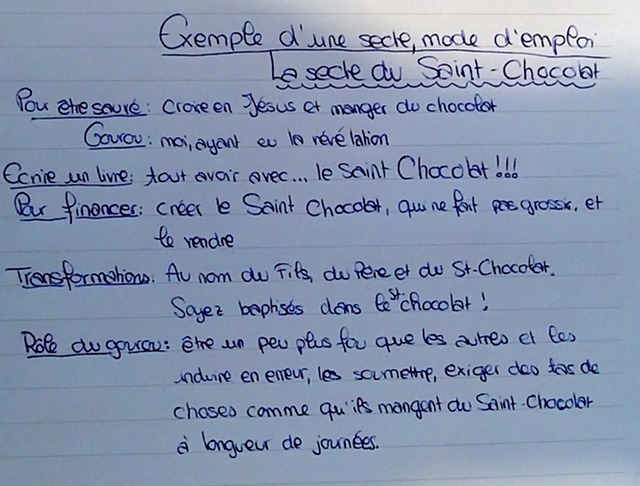 Exemple d'une secte, mode d'emploi
La secte du Saint-Chocolat
Pour être sauvé : Croire en Jésus et manger du chocolat
Gourou : moi, ayant eu la révélation
Ecrire un livre : tout avoir avec... le Saint Chocolat !!!
Pour financer : créer le Saint Chocolat, qui ne fait pas grossir, et
le vendre
Transformations : Au nom du Fils, du Père et du St-Chocolat.
Soyez baptisés dans le St chocolat !
Rôle du gourou : être un peu plus fou que les autres et les
induire en erreur, les soumettre, exiger des tas de
choses comme qu'ils mangent du Saint-Chocolat
à longueur de journées.